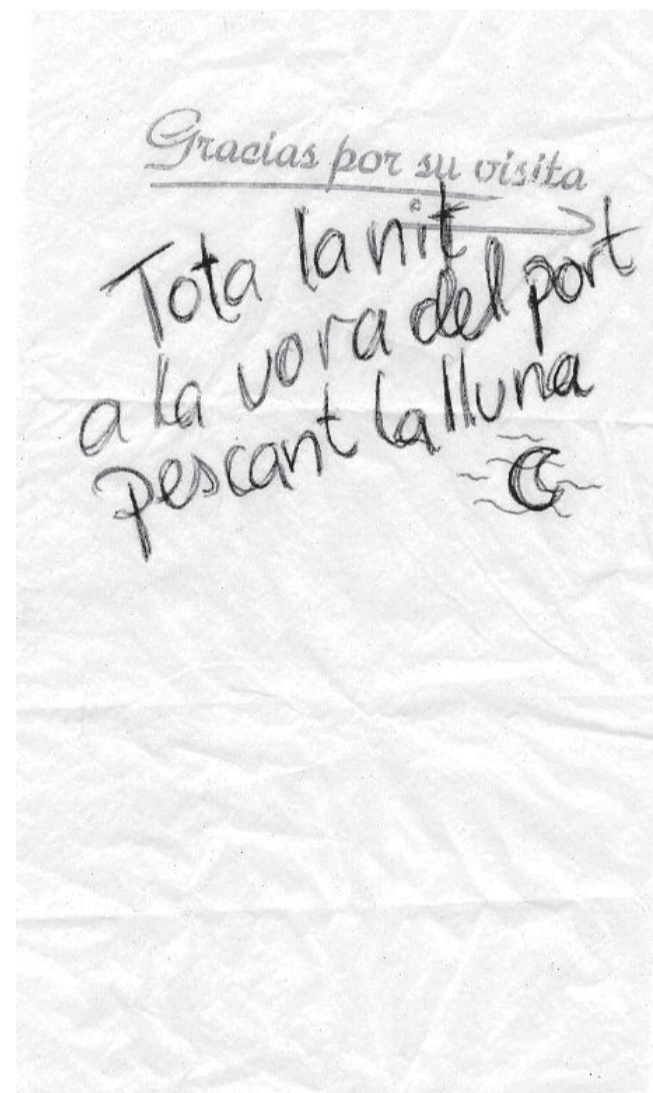 Gracias por su visita
Tota la nit
a la vora del port
pescant la lluna